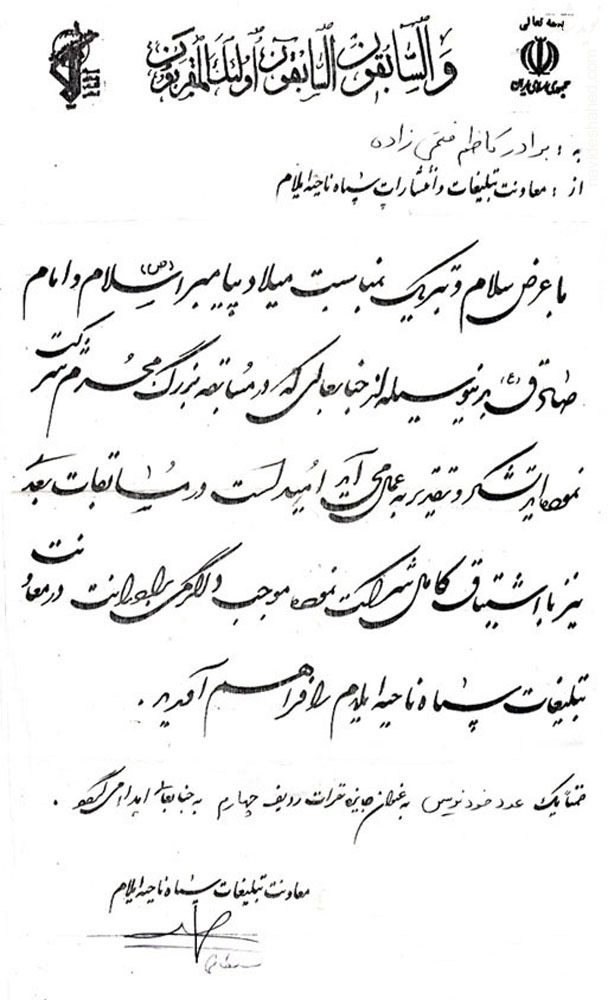 بسمه تعالی
جمهوری اسلامی ایران
وَالسَّابِقُونَ السَّابِقُونَ أُولَٰئِكَ الْمُقَرَّبُونَ
به : برادر کاظم فتحی زاده
از : معاونت تبلیغات و انتشارات سپاه ناحیه ایلام
با عرض سلام و تبریک بمناسبت میلاد پیامبر اسلام (ص) و امام
صادق (ع) بدینوسیله از جنابعالی که در مسابقه بزرگ محرم شرکت
نموده اید تشکر و تقدیر به عمل می آید امید است در مسابقات بعدی
نیز با اشتیاق کامل شرکت نموده موجب دلگرمی برادرانت در معاونت
تبلیغات سپاه ناحیه ایلام را فراهم آورید .
ضمناً یک عدد خودنویس به عنوان جایزه نفرات ردیف چهارم به جنابعالی اهدا می گردد .
معاونت تبلیغات سپاه ناحیه ایلام
navideshahed.com